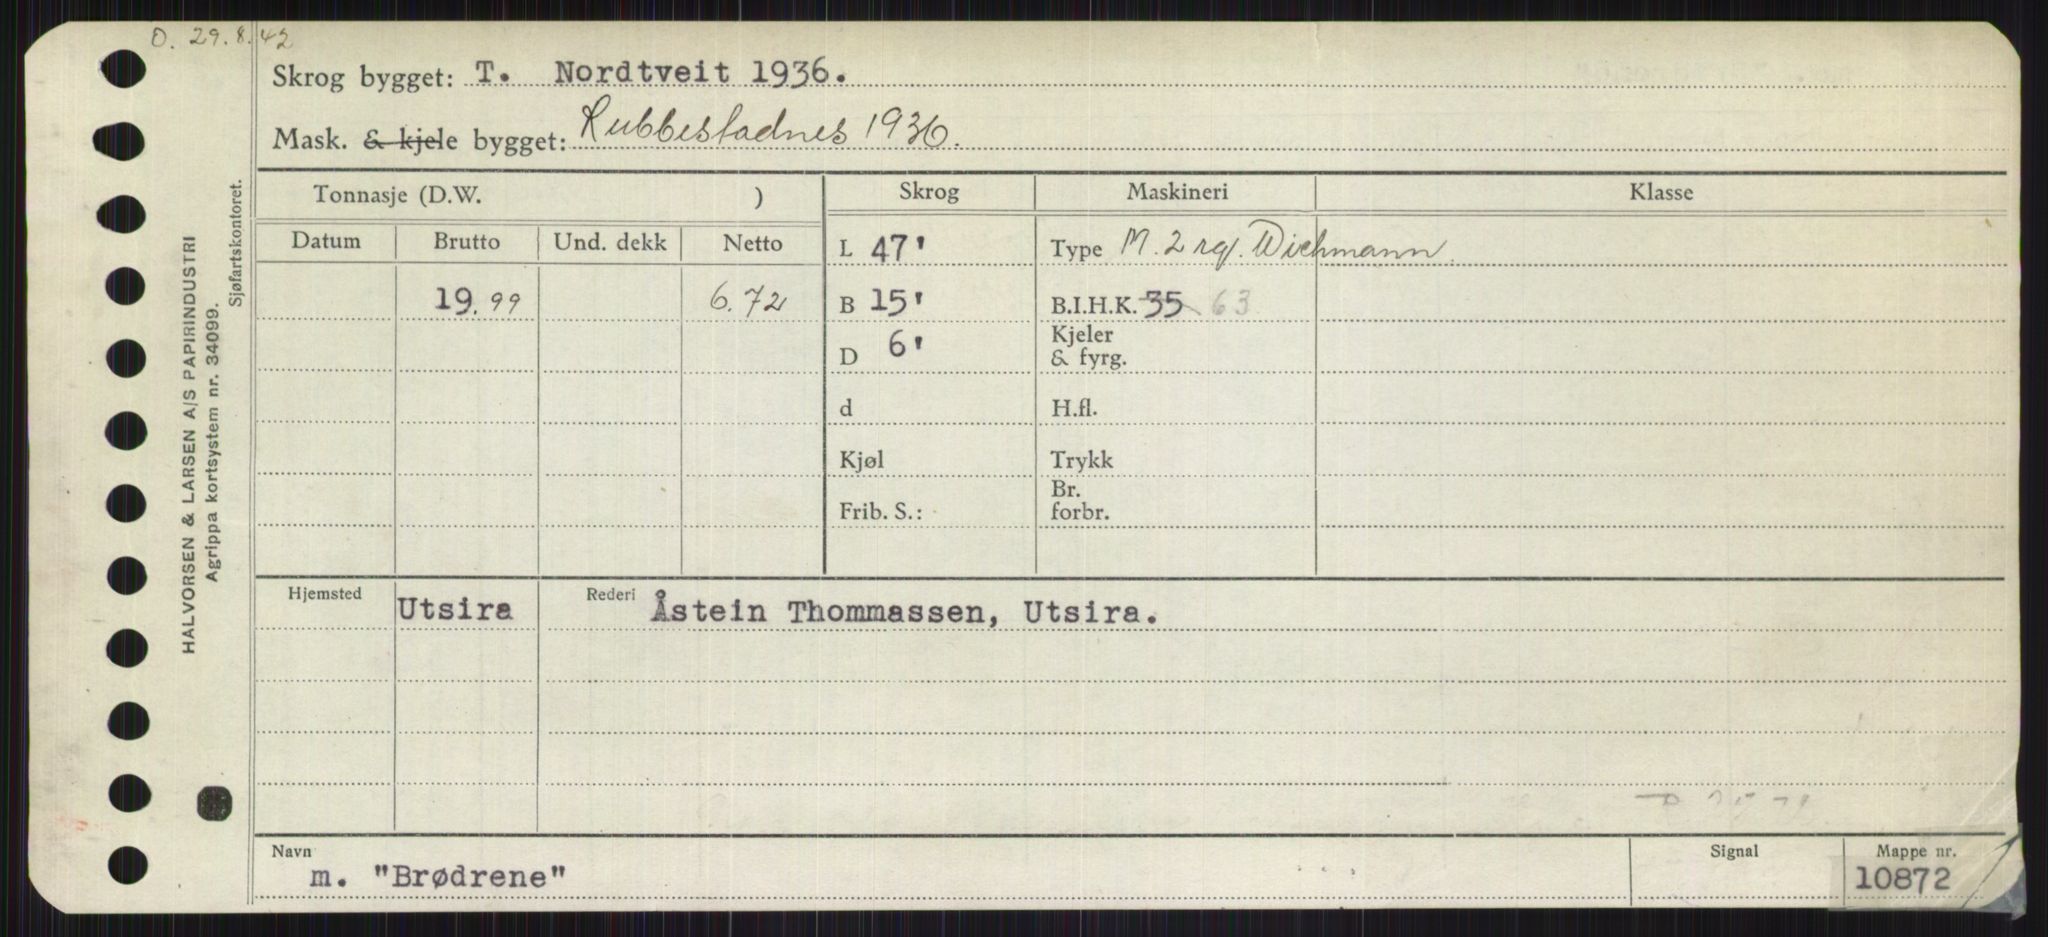 O. 29.8.42
Skrog bygget: T. Nordtveit 1936.
Mask. & kjele bygget: Rubbestadnes 1936.
Tonnasje (D.W. )
Skrog
Maskineri
Klasse
Datum
Brutto
Und. dekk
Netto
L 47'
Type M. 2 syl. Wichmann
19.99
6.72
B 15'
B.I.H.K. 35 63
D 6'
Kjeler
& fyrg.
d
H.fl.
Kjøl
Trykk
Frib. S.:
Br.
forbr.
Hjemsted Utsira
Rederi Åstein Thommassen, Utsira.
Navn
m. "Brødrene"
Signal
Mappe nr.
10872
HALVORSEN & LARSEN A/S PAPIRINDUSTRI
Agrippa kortsystem nr. 34099.
Sjøfartskontoret.